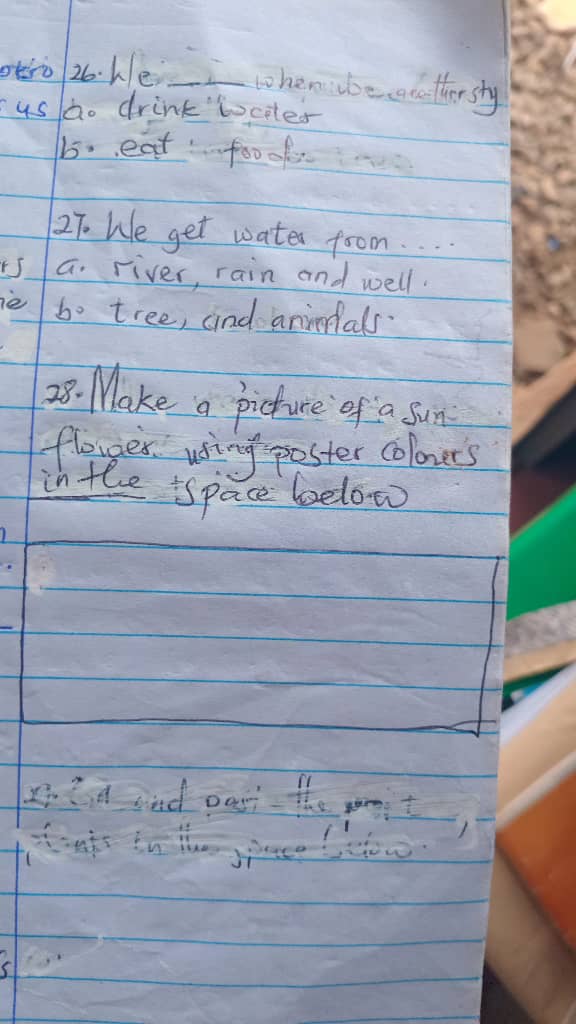 okro
us
26. We ___ when we are thirsty
a. drink water
b. eat food
27. We get water from ....
a. river, rain and well.
b. tree, and animals.
28. Make a picture of a sun
flower using poster colours
in the space below
and the
in the space below.